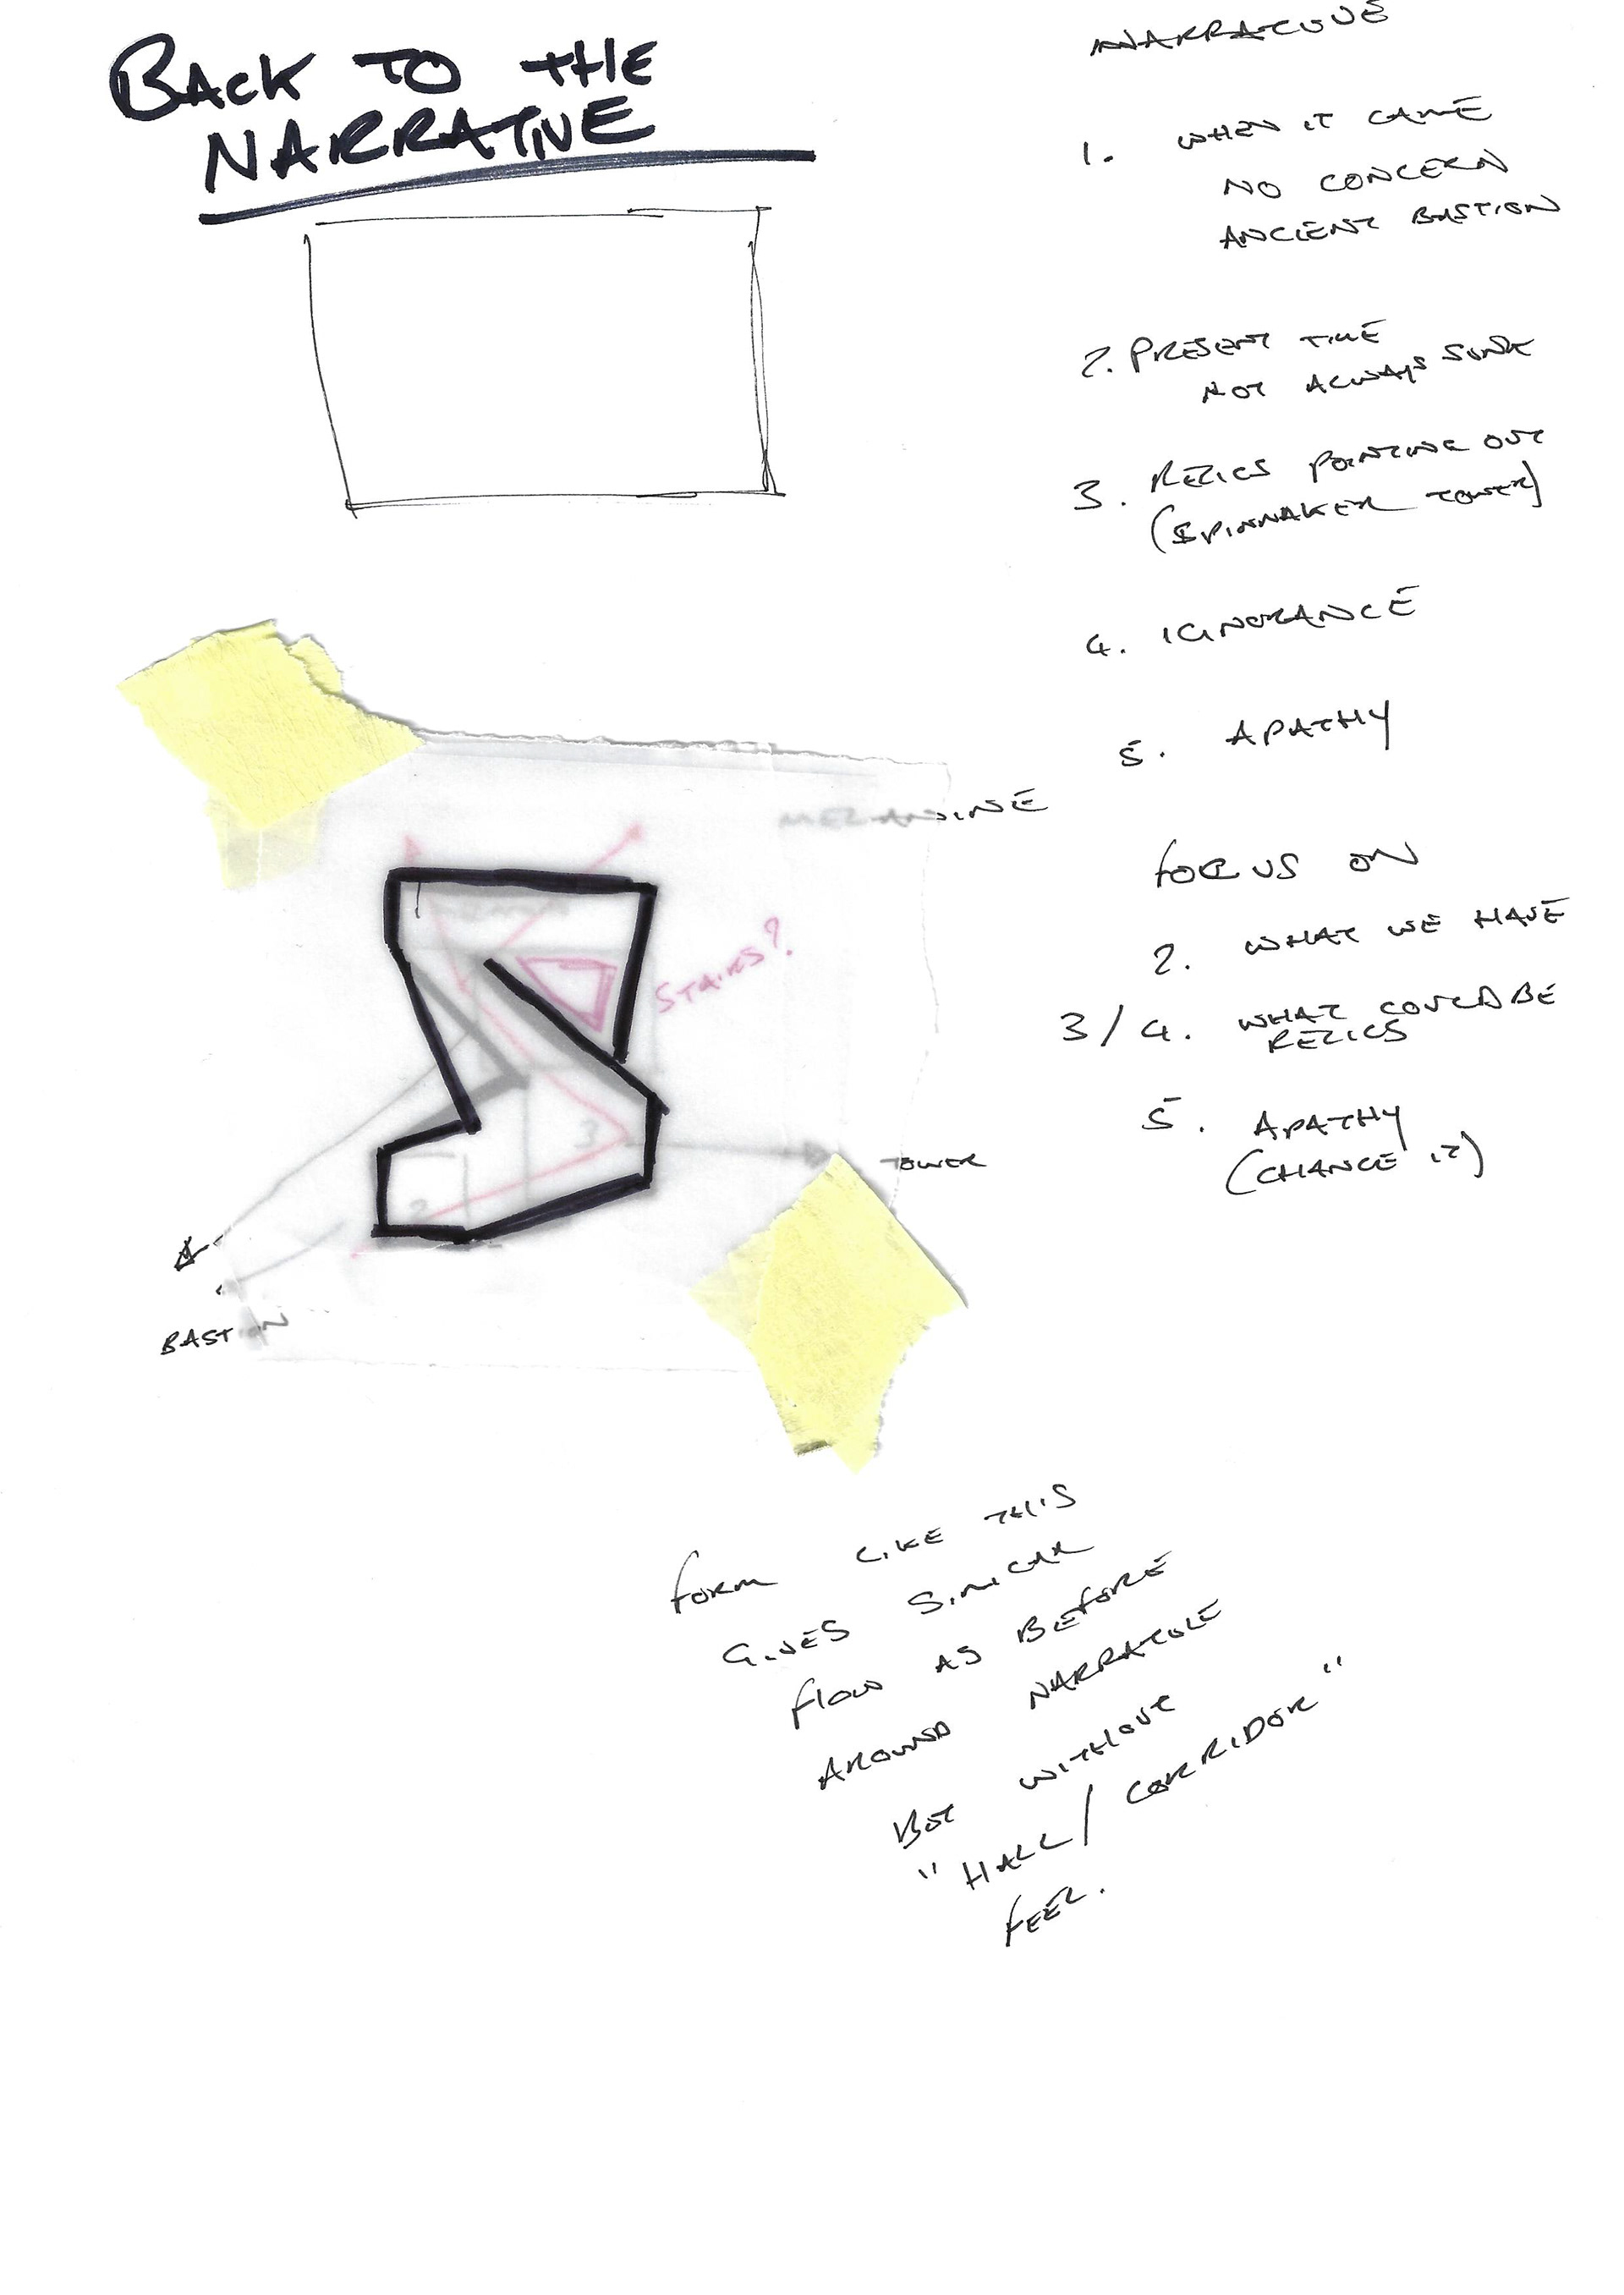 BACK TO THE
NARRATIVE
NARRATIVE
1. WHEN IT CAME
NO CONCERN
ANCIENT BASTION
2. PRESENT TIME
NOT ALWAYS SUNK
3. RELICS POINTING OUT
(SPINNAKER TOWER)
4. IGNORANCE
5. APATHY
FOCUS ON
2. WHAT WE HAVE
3/4. WHAT COULD BE
RELICS
5. APATHY
(CHANGE IT)
MEZANINE
STAIRS?
3
TOWER
2
BASTION
FORM LIKE THIS
GIVES SIMILAR
FLOW AS BEFORE
AROUND NARRATIVE
BUT WITHOUT
"HALL/CORRIDOR"
FEEL.